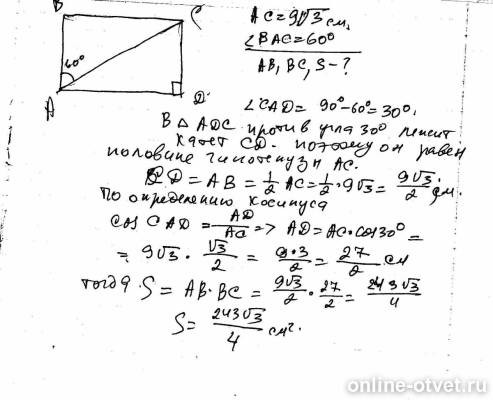 B C
AC=9√3 см,
∠BAC=60°
60°
AB, BC, S-?
A D
∠CAD= 90°-60°=30°,
В △ ADC против угла 30° лежит
катет CD. поэтому он равен
половине гипотенузы AC.
CD = AB = 1/2 AC = 1/2 · 9√3 = 9√3/2 см.
По определению косинуса
cos CAD = AD/AC => AD=AC·cos30° =
= 9√3 · √3/2 = 9·3/2 = 27/2 см
тогда S = AB·BC = 9√3/2 · 27/2 = 243√3/4
S = 243√3/4 см².
online-otvet.ru